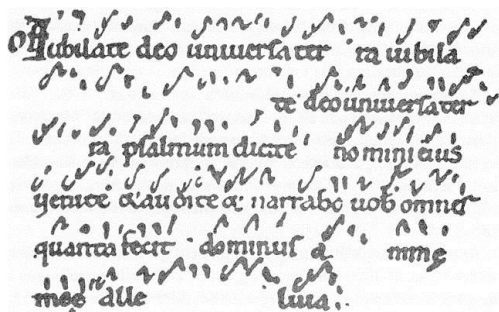 Of Iubilate deo uniuersa ter ra iubila
te deo uniuersa ter
ra psalmum dicite nomini eius
uenite & audite & narrabo uob omnes
quanta fecit dominus a nimę
meę alle luia: